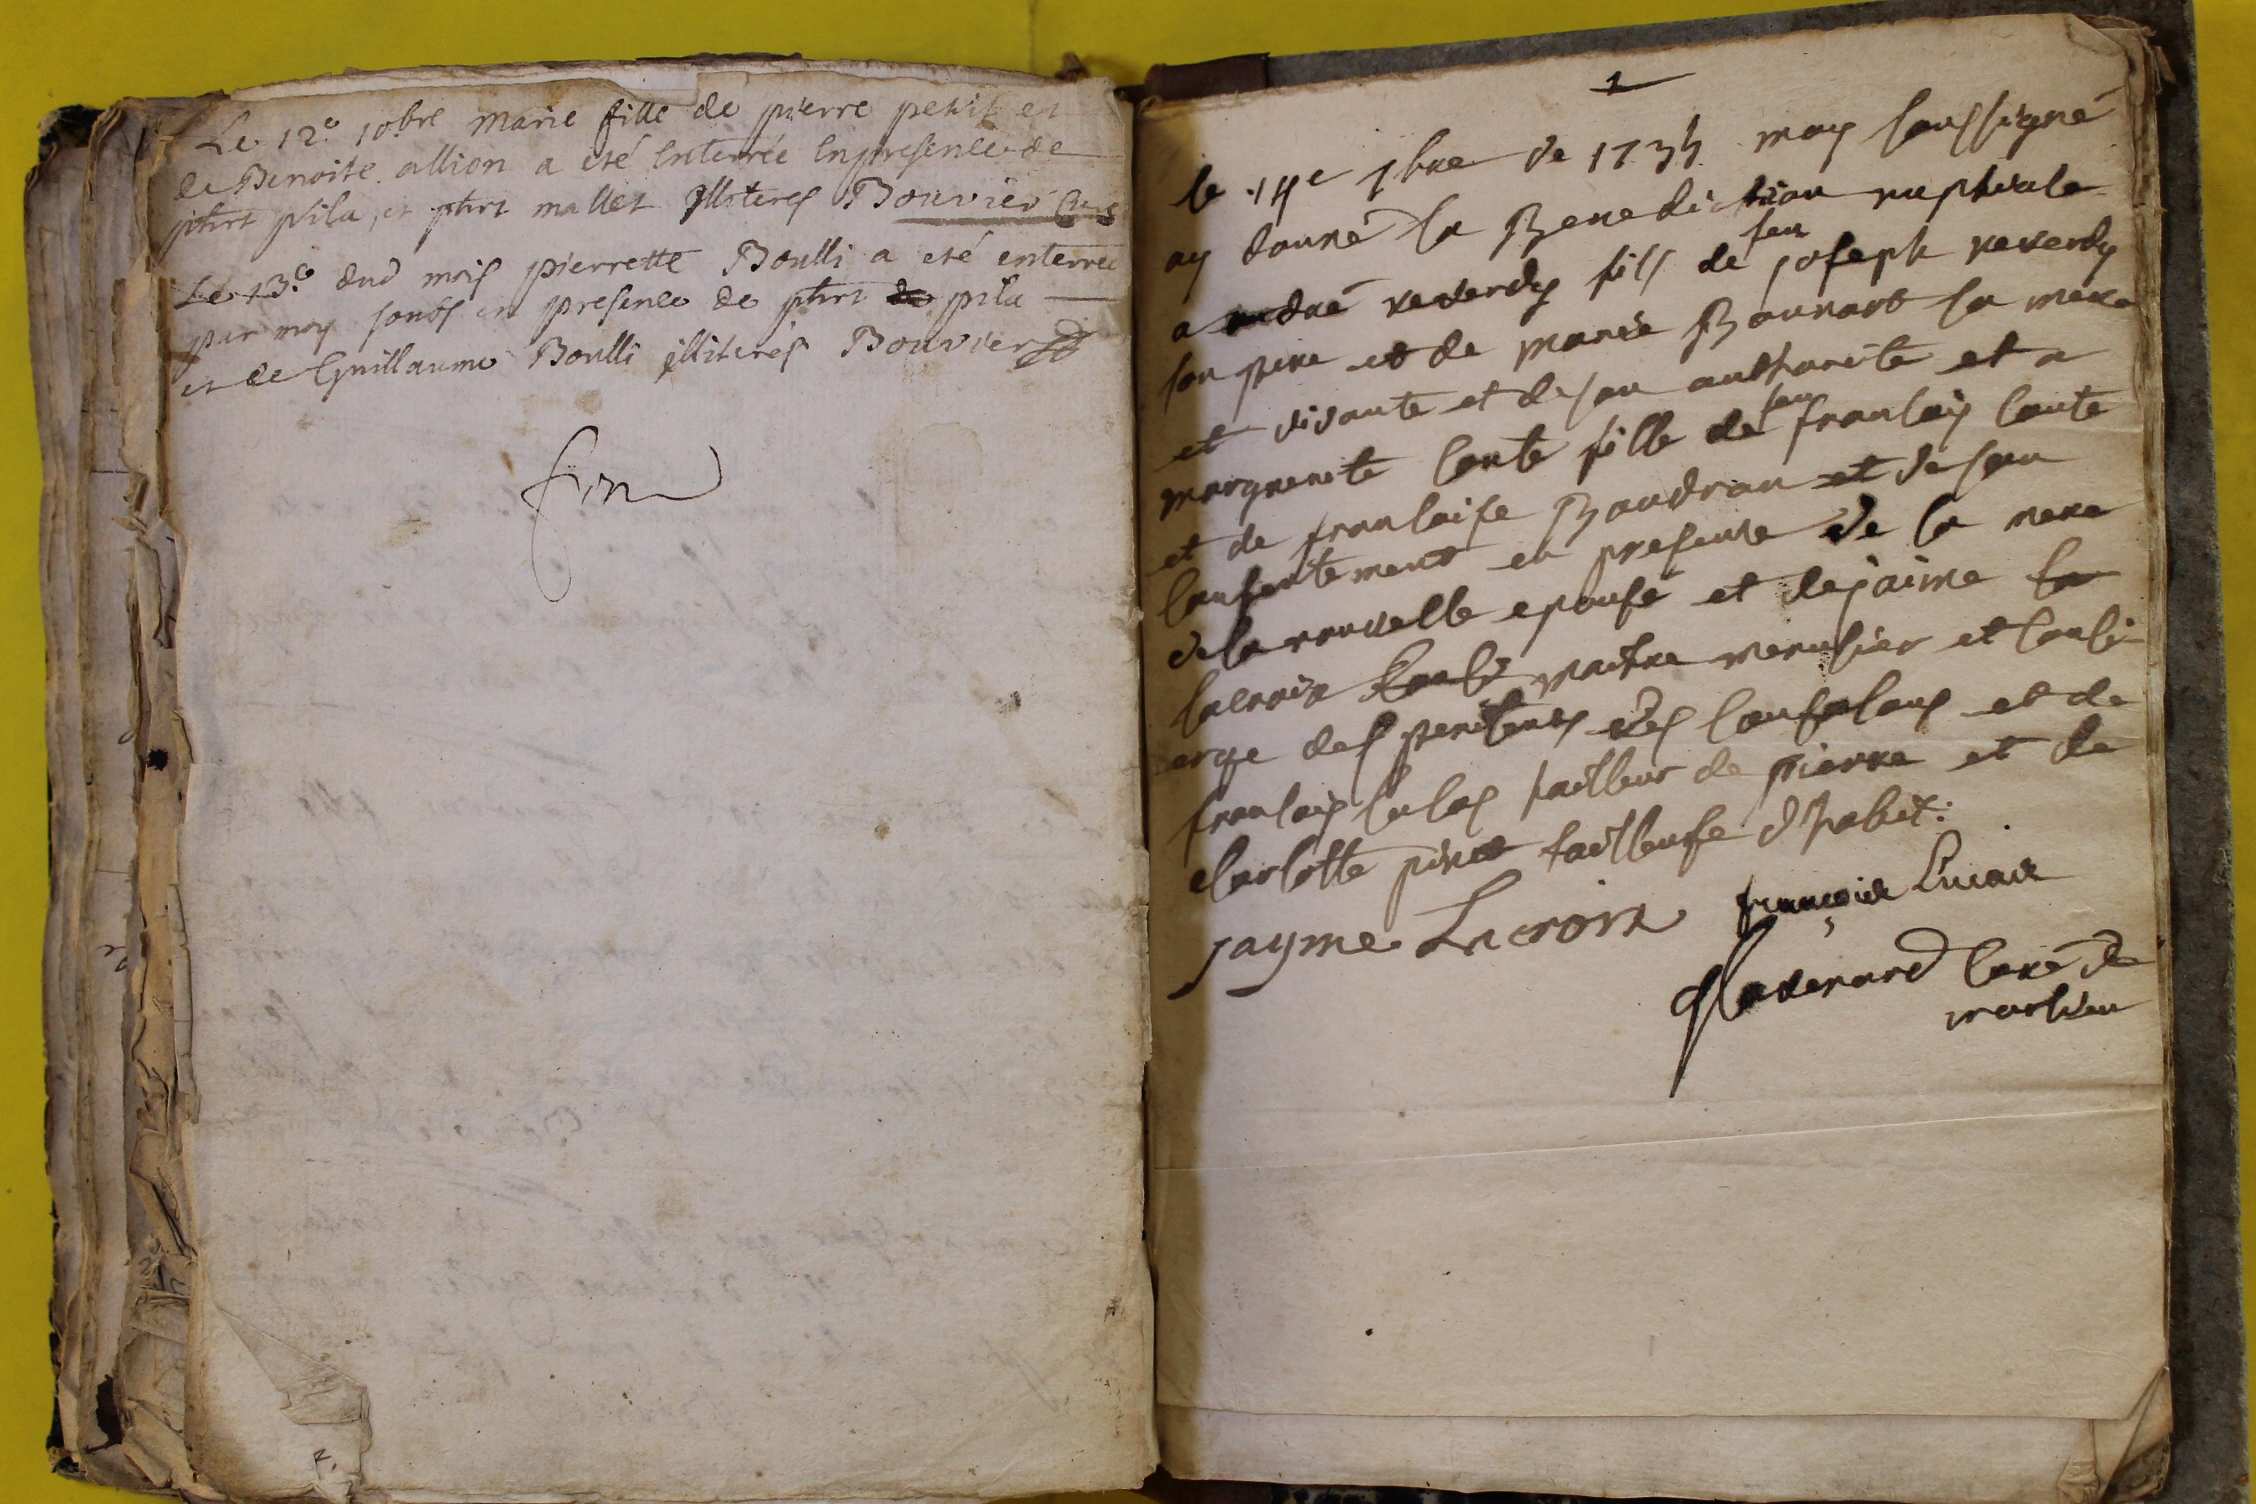 Le 12e 10bre marie fille de pierre petit et
de Benoite allion a eté enterrée en presence de
phrt pila, et phrt mallet illiterés Bouvier Curé
Le 13e dud mois pierrette Boulli a eté enterrée
par moy sousé en presence de phrt de pila
et de Guillaume Boulli illiterés Bouvier
fin
1
le 14e 9bre de 1734 moy soussigné
ay donné la Benediction nuptiale
a andré reverdy fils de feu joseph reverdy
son pere et de marie Bonnard sa mere
et vivante et de son authorité et a
marguerite conte fille de feu francois conte
et de francoise Baudran et de son
consentement en presence de la mere
de la nouvelle epouse et de jaime la
lacroix maitre menusier et conci-
erge des penitents des confalons et de
francois lucas tailleur de pierre et de
charlotte pivot tailleuse d'habit:
jayme Lacroix françois Lucas
Ravenard curé de